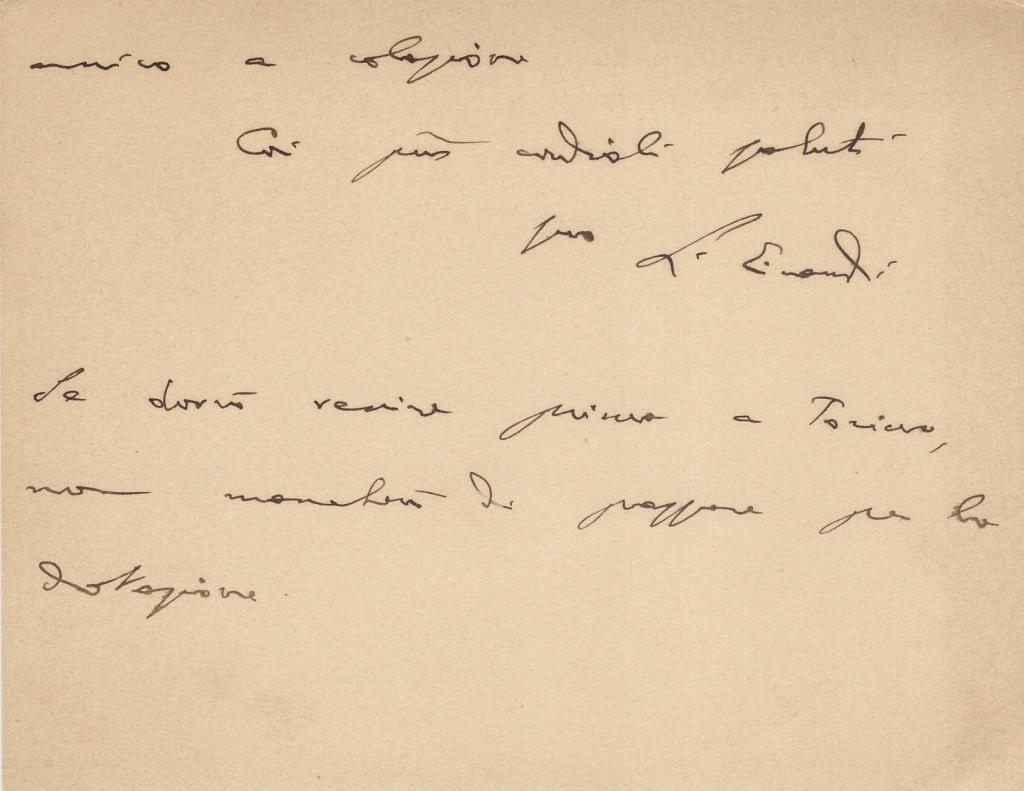 amico a colazione
Coi più cordiali saluti
suo L. Einaudi
Se dovrò venire prima a Torino,
non mancherò di passare per la